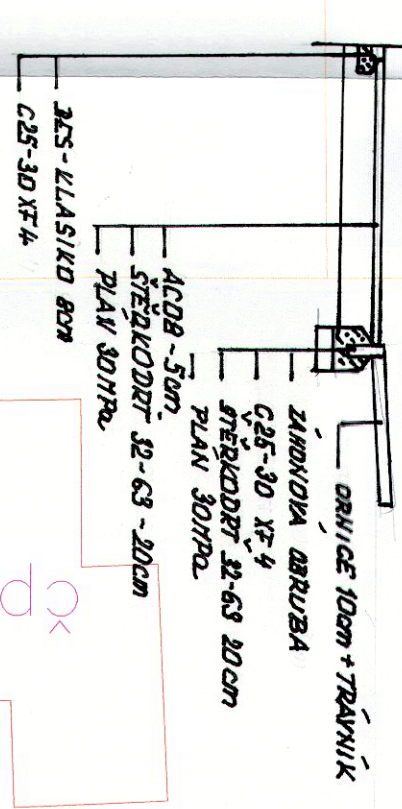 ORNICE 10cm + TRÁVNÍK
ZÁHONOVÁ OBRUBA
C25-30 XF4
ŠTĚRKODRŤ 32-63 20cm
PLÁŇ 30MPa
ACO8 - 5cm
ŠTĚRKODRŤ 32-63 - 20cm
PLÁŇ 30MPa
BES-KLASIKO 8cm
C25-30 XF4
čp